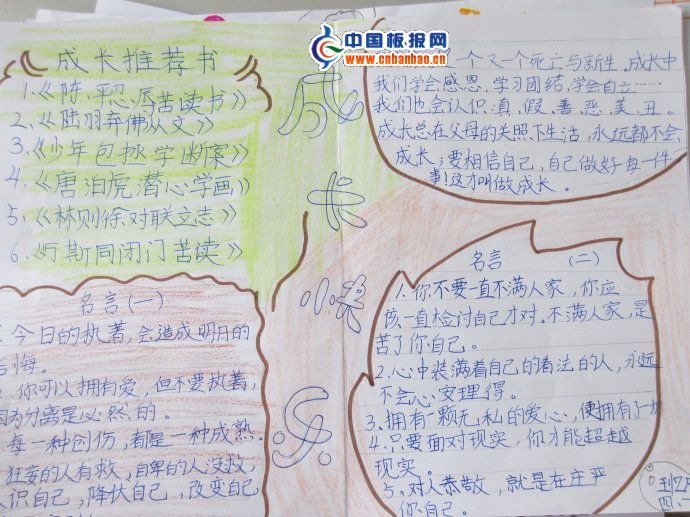 中国板报网
www.cnbanbao.cn
成长推荐书
1.《陈平忍辱苦读书》
2.《陆羽弃佛从文》
3.《少年包拯学断案》
4.《唐泊虎潜心学画》
5.《林则徐对联立志》
6.《万斯同闭门苦读》
成长小快乐
一个又一个死亡与新生。成长中
我们学会感恩、学习团结、学会自立……
我们也会认识真、假、善、恶、美、丑。
成长总在父母的关照下生活,永远都不会
成长;要相信自己,自己做好每一件
事!这才叫做成长。
名言(一)
今日的执著,会造成明月的
后悔。
你可以拥有爱,但不要执著,
因为分离是必然的。
每一种创伤,都是一种成熟。
狂妄的人有救,自卑的人没救,
认识自己,降伏自己,改变自己
名言(二)
1.你不要一直不满人家,你应
该一直检讨自己才对。不满人家,是
苦了你自己。
2.心中装满着自己的看法的人,永远
不会心安理得。
3.拥有一颗无私的爱心,便拥有了一切
4.只要面对现实,你才能超越
现实。
5、对人恭敬,就是在庄严
你自己。